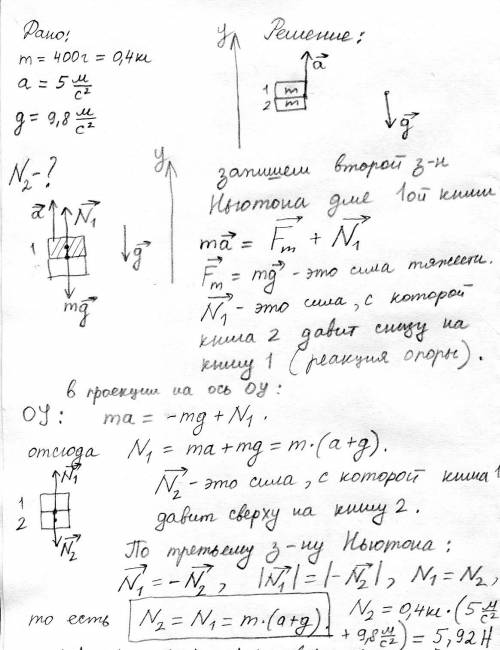 Дано:
m = 400г = 0,4кг
a = 5 м/с²
g = 9,8 м/с²
N₂ - ?
y
Решение:
a⃗
1 m
2 m
g⃗
a⃗ N⃗₁
1
mg⃗
g⃗
y
запишем второй з-н
Ньютона для 1ой книги
ma⃗ = F⃗m + N⃗₁
F⃗m = mg⃗ - это сила тяжести.
N⃗₁ - это сила, с которой
книга 2 давит снизу на
книгу 1 (реакция опоры).
в проекции на ось OY:
OY: ma = -mg + N₁.
отсюда N₁ = ma + mg = m·(a+g).
N⃗₁
1
2
N⃗₂
N⃗₂ - это сила, с которой книга 1
давит сверху на книгу 2.
По третьему з-ну Ньютона:
N⃗₁ = -N⃗₂, |N⃗₁| = |-N⃗₂|, N₁ = N₂,
то есть N₂ = N₁ = m·(a+g). N₂ = 0,4кг·(5 м/с²
+ 9,8 м/с²) = 5,92 Н